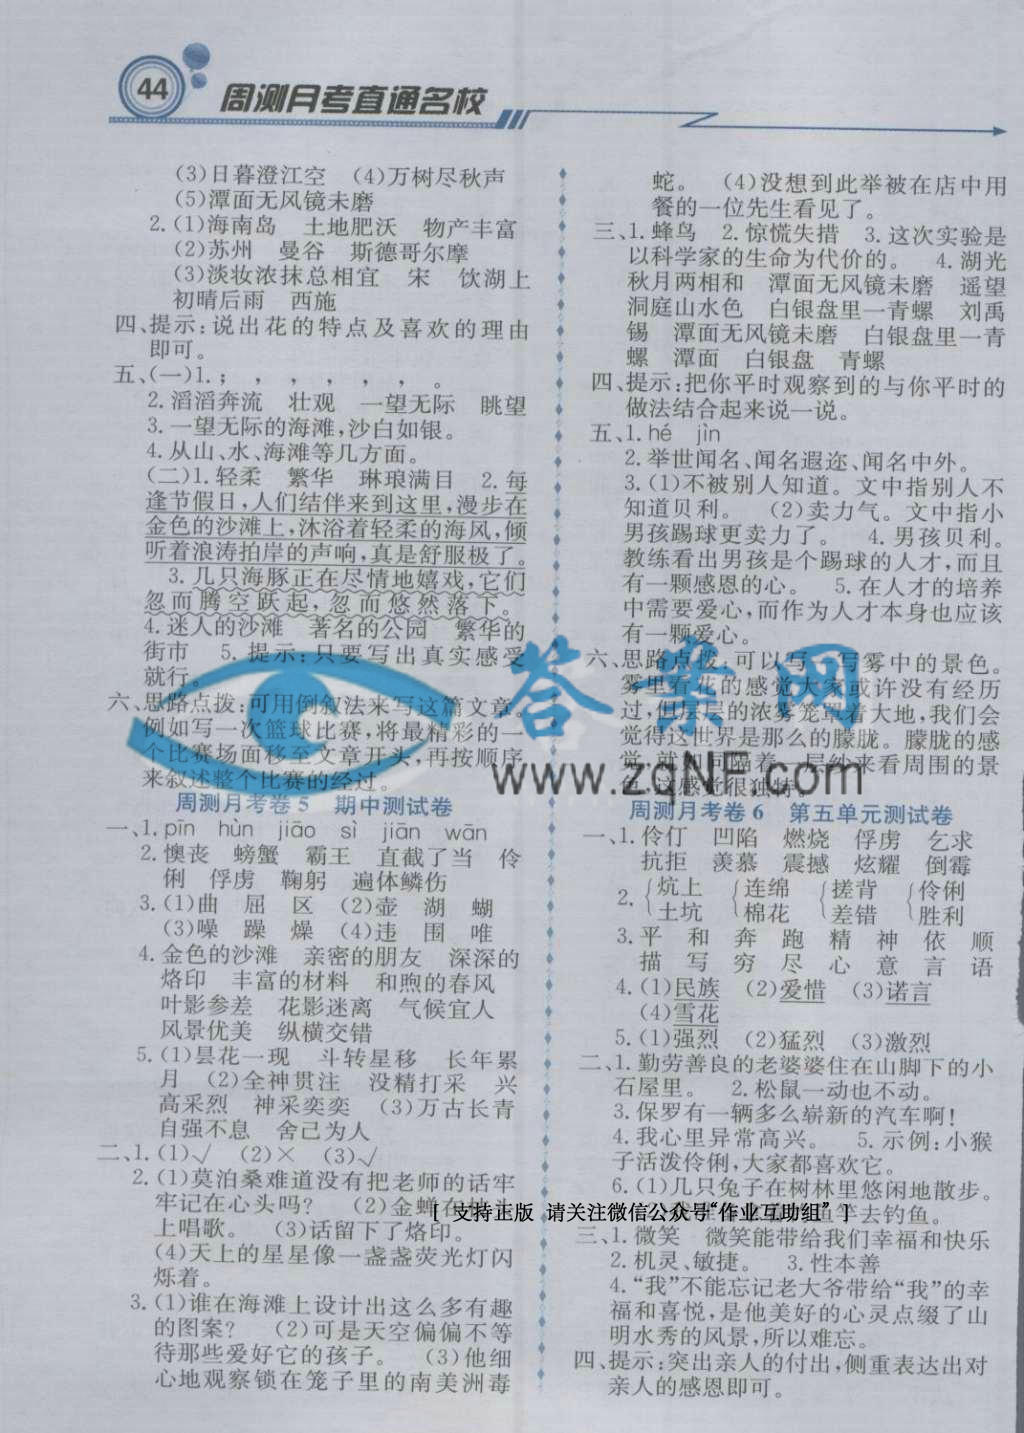 44
周测月考直通名校
(3)日暮澄江空 (4)万树尽秋声
(5)潭面无风镜未磨
2.(1)海南岛 土地肥沃 物产丰富
(2)苏州 曼谷 斯德哥尔摩
(3)淡妆浓抹总相宜 宋 饮湖上
初晴后雨 西施
四、提示:说出花的特点及喜欢的理由
即可。
五、(一)1.; , , , , , , 。
2.滔滔奔流 壮观 一望无际 眺望
3.一望无际的海滩,沙白如银。
4.从山、水、海滩等几方面。
(二)1.轻柔 繁华 琳琅满目 2.每
逢节假日,人们结伴来到这里,漫步在
金色的沙滩上,沐浴着轻柔的海风,倾
听着浪涛拍岸的声响,真是舒服极了。
3.几只海豚正在尽情地嬉戏,它们
忽而腾空跃起,忽而悠然落下。
4.迷人的沙滩 著名的公园 繁华的
街市 5.提示:只要写出真实感受
就行。
六、思路点拨:可用倒叙法来写这篇文章。
例如写一次篮球比赛,将最精彩的一
个比赛场面移至文章开头,再按顺序
来叙述整个比赛的经过。
周测月考卷5 期中测试卷
一、1.pīn hùn jiāo sì jiān wān
2.懊丧 螃蟹 霸王 直截了当 伶
俐 俘虏 鞠躬 遍体鳞伤
3.(1)曲 屈 区 (2)壶 湖 蝴
(3)噪 躁 燥 (4)违 围 唯
4.金色的沙滩 亲密的朋友 深深的
烙印 丰富的材料 和煦的春风
叶影参差 花影迷离 气候宜人
风景优美 纵横交错
5.(1)昙花一现 斗转星移 长年累
月 (2)全神贯注 没精打采 兴
高采烈 神采奕奕 (3)万古长青
自强不息 舍己为人
二、1.(1)√ (2)× (3)√
2.(1)莫泊桑难道没有把老师的话牢
牢记在心头吗? (2)金蝉在枝头
上唱歌。 (3)话留下了烙印。
(4)天上的星星像一盏盏荧光灯闪
烁着。
3.(1)谁在海滩上设计出这么多有趣
的图案? (2)可是天空偏偏不等
待那些爱好它的孩子。 (3)他细
心地观察锁在笼子里的南美洲毒
蛇。 (4)没想到此举被在店中用
餐的一位先生看见了。
三、1.蜂鸟 2.惊慌失措 3.这次实验是
以科学家的生命为代价的。 4.湖光
秋月两相和 潭面无风镜未磨 遥望
洞庭山水色 白银盘里一青螺 刘禹
锡 潭面无风镜未磨 白银盘里一青
螺 潭面 白银盘 青螺
四、提示:把你平时观察到的与你平时的
做法结合起来说一说。
五、1.hé jìn
2.举世闻名、闻名遐迩、闻名中外。
3.(1)不被别人知道。文中指别人不
知道贝利。 (2)卖力气。文中指小
男孩踢球更卖力了。 4.男孩贝利。
教练看出男孩是个踢球的人才,而且
有一颗感恩的心。 5.在人才的培养
中需要爱心,而作为人才本身也应该
有一颗爱心。
六、思路点拨:可以写一写雾中的景色。
雾里看花的感觉大家或许没有经历
过,但层层的浓雾笼罩着大地,我们会
觉得这世界是那么的朦胧。朦胧的感
觉,就 同隔着一层纱来看周围的景
色,这感觉很独特。
周测月考卷6 第五单元测试卷
一、1.伶仃 凹陷 燃烧 俘虏 乞求
抗拒 羡慕 震撼 炫耀 倒霉
2.{炕上 {连绵 {搓背 {伶俐
土坑 棉花 差错 胜利
3.平 和 奔 跑 精 神 依 顺
描 写 穷 尽 心 意 言 语
4.(1)民族 (2)爱惜 (3)诺言
(4)雪花
5.(1)强烈 (2)猛烈 (3)激烈
二、1.勤劳善良的老婆婆住在山脚下的小
石屋里。 2.松鼠一动也不动。
3.保罗有一辆多么崭新的汽车啊!
4.我心里异常高兴。 5.示例:小猴
子活泼伶俐,大家都喜欢它。
6.(1)几只兔子在树林里悠闲地散步。
鱼竿去钓鱼。
三、1.微笑 微笑能带给我们幸福和快乐
2.机灵、敏捷。 3.性本善
4.“我”不能忘记老大爷带给“我”的幸
福和喜悦,是他美好的心灵点缀了山
明水秀的风景,所以难忘。
四、提示:突出亲人的付出,侧重表达出对
亲人的感恩即可。
答案网
www.zqNF.com
[ 支持正版 请关注微信公众号“作业互助组” ]